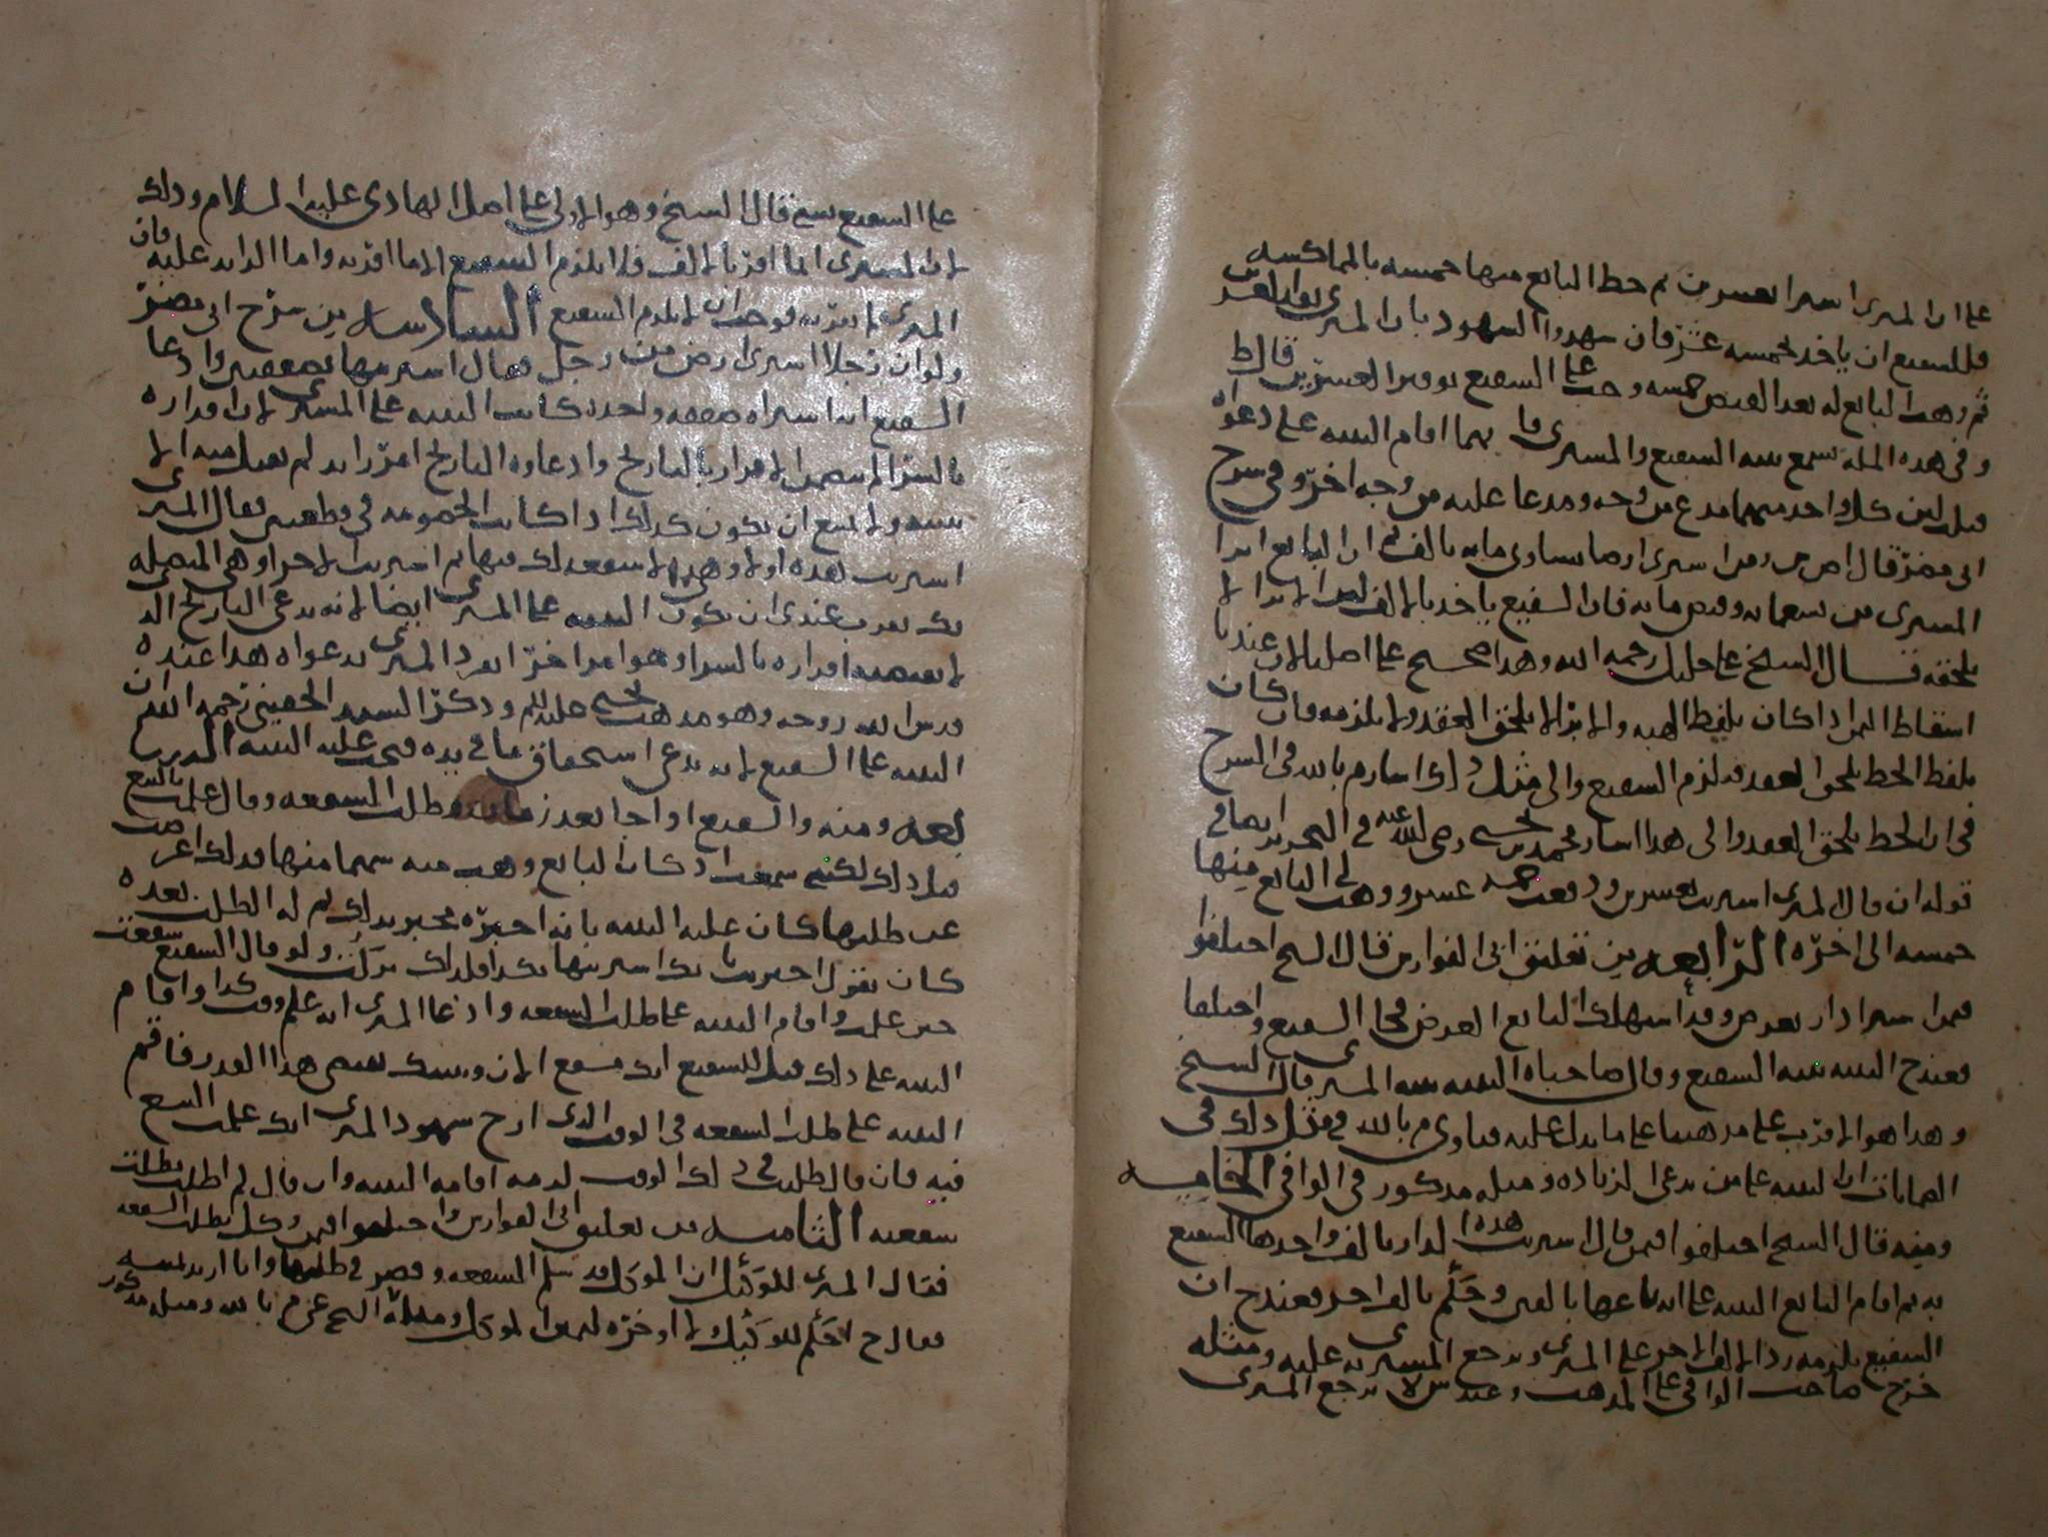 على ان المشترى اشترا بعشرين ثم حط البايع منها خمسه بالمماكسه
فللشفيع ان ياخذ بخمسه عشر فان شهدوا الشهود بان المشترى
ثم وهب البايع له بعد القبض خمسه وجب على الشفيع توفير العشرين قال ط
وفى هذه المسله تسمع بينه الشفيع والمشترى فا يهما اقام البينه على دعواه
قبلت لان كل واحد منهما مدع من وجه ومدعا عليه من وجه اخر وفى شرح
ابى مضر قال ص من اشترى ارضا تساوى مايه بالف ثم ان البايع ابرا
المشترى من تسعمايه وقبض مايه فان الشفيع ياخذ بالالف لان الابرا لا
يلحقه قال الشيخ على خليل رحمه الله وهذا صحيح على اصلنا لان عندنا
اسقاط الثمن اذا كان بلفظ الهبه والابرا لا يلحق العقد ولا يلزمه وان كان
بلفظ الحط يلحق العقد فيلزم الشفيع والى مثل ذلك اشار م بالله فى الشرح
فى ان الحط يلحق العقد والى هذا اشار محمد بن يحيى رضى الله عنه فى التحرير ايضا فى
قوله ان قال المشترى اشتريت بعشرين ودفعت خمسه عشر ووهب لى البايع منها
خمسه الى اخره الرابعه من تعليق ابى الفوارس قال الشيخ اختلفوا
فيمن اشترا دار بعرض وقد استهلك البايع العرض فجا الشفيع واختلفا
فعند ح البينه بينه الشفيع وقال صاحباه البينه بينه المشترى قال الشيخ
وهذا هو الاقرب على مذهبنا على ما يدل عليه فتاوى م بالله فى مثل ذلك فى
ان البينه على من يدعى الزياده ومثله مذكور فى الوافى الخامسه
ومنه قال الشيخ اختلفوا فيمن قال اشتريت هذه الدار بالف واخذها الشفيع
به ثم اقام البايع البينه على انه باعها بالفين وحكم بالف اخر فعند ح ان
الشفيع يلزمه رد الالف الاخر على المشترى ويرجع المشترى به عليه ومثله
خرج صاحب الوافى على المذهب وعند ش لا يرجع المشترى
على الشفيع بشى قال الشيخ وهو الاولى على اصل الهادى عليه السلام وذلك
لان المشترى انما اقر بالالف فلا يلزم الشفيع الا ما اقر به واما الزايد عليه فان
المشترى لم يقر به فوجب ان لا يلزم الشفيع السادسه من شرح ابى مضر
ولو ان رجلا اشترى ارض من رجل فقال اشتريتها بصفقتين وادعا
الشفيع انه اشتراه صفقه واحده كانت البينه على المشترى لان اقراره
بالشرا لم يتضمن الاقرار بالتاريخ وادعاوه التاريخ امر زايد لم يقبل منه الا
ببينه ولا يمتنع ان يكون كذلك اذا كانت الخصومه فى قطعتين فقال المشترى
اشتريت هذه اولا وهى لا شفعه لك فيها ثم اشتريت الاخرا وهى المتصله
بك يقرب عندى ان يكون البينه على المشترى ايضا لانه يدعى التاريخ الذ
لا يتضمنه اقراره بالشرا وهو امرا خر انفرد المشترى بدعواه هذا عنده
قدس الله روحه وهو مذهب يحيى صلى الله عليه وذكر السيد الحقينى رحمه الله ان
البينه على الشفيع لانه يدعى استحقاق ما فى يده فيجب عليه البينه
بعه ومنه والشفيع اذا جا بعد زمان وطلب الشفعه وقال علمت بالبيع
قبل ذلك لكنى سمعت ان البايع وهب منه سهما منها فلذلك اعرضت
عن طلبها كان عليه البينه بانه اخبره مخبر بذلك ثم له الطلب بعده
كان يقول اخبرت بانك اشتريتها بكذا فلذلك تركت ولو قال الشفيع شفعت
حين علمت واقام البينه على طلب الشفعه وادعا المشترى انه علم وقت كذا واقام
البينه على ذلك قيل للشفيع انك مشفع الان وبينتك بعد هذا العذر فاقم
البينه على طلب الشفعه فى الوقت الذى ارخ شهود المشترى انك علمت البيع
فيه فان قال طلبت فى ذلك الوقت لزمه اقامه البينه وان قال لم اطلب بطلت
شفعته الثامنه من تعليق ابى الفوارس واختلفوا فيمن وكل بطلب الشفعه
فقال المشترى للوكيل ان الموكل قد سلم الشفعه وقصر فى طلبها وانا اريد يمينه
فقال ح لا حكم للوكيل ولا اوخره ليمين الموكل ومثله الشيخ عن م بالله ومثله مذكور